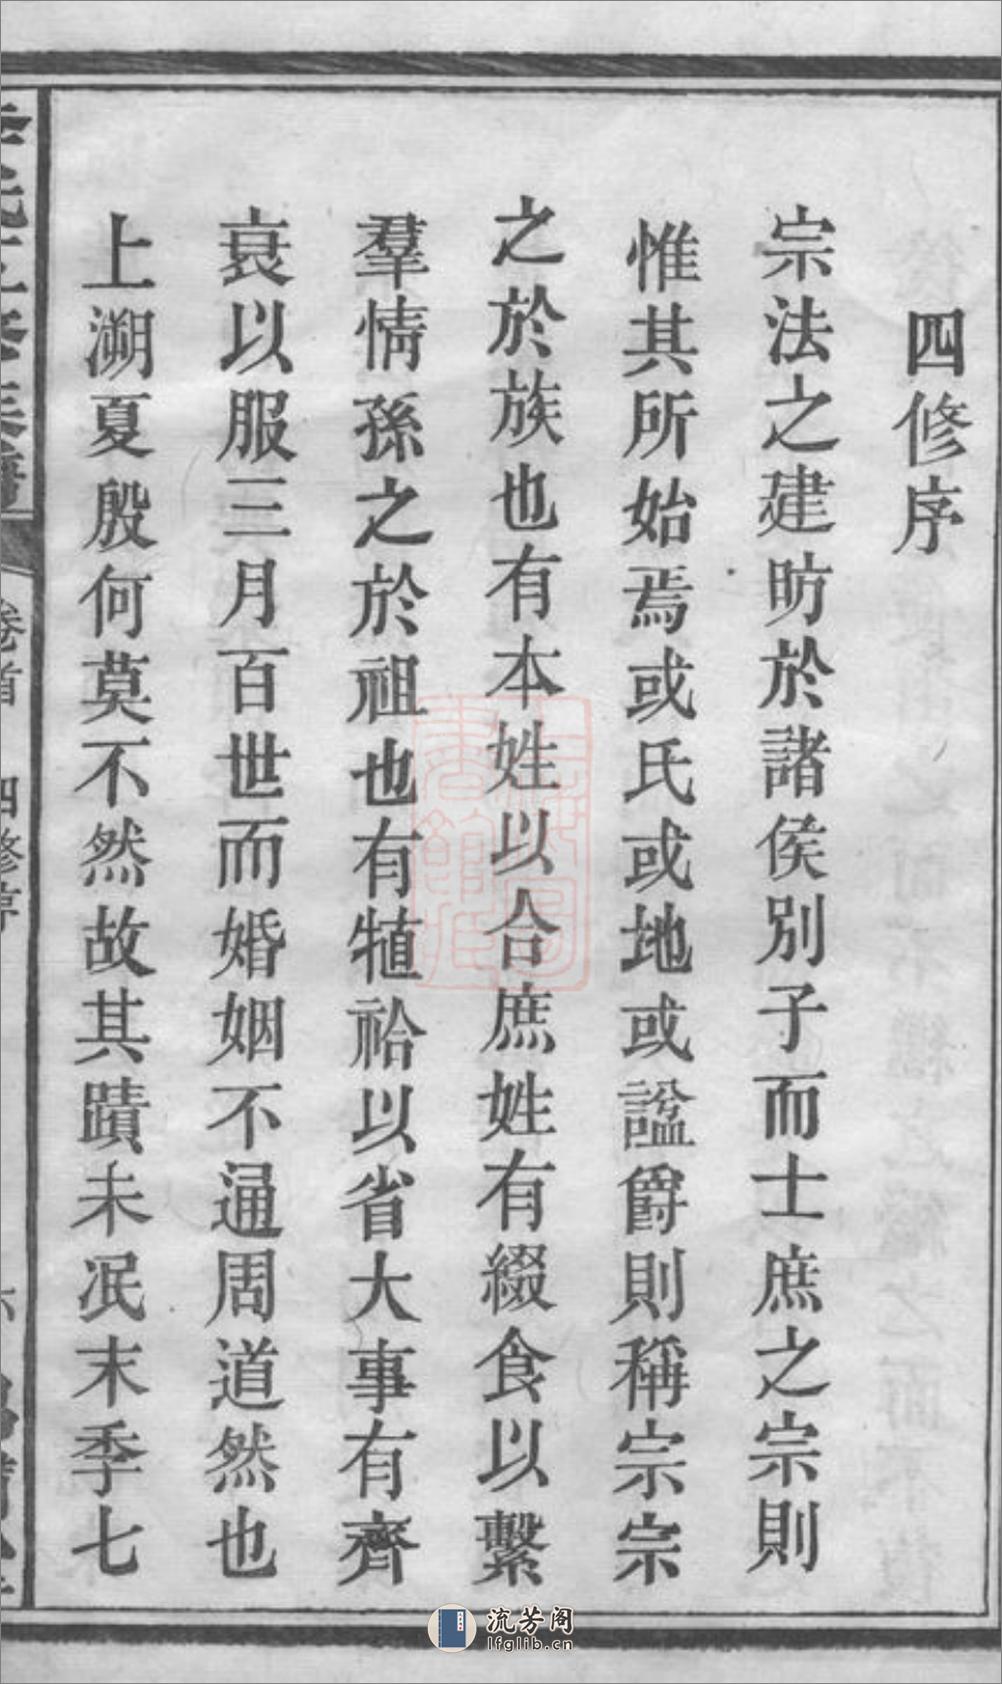 四修序
宗法之建昉於諸侯別子而士庶之宗則
惟其所始焉或氏或地或諡爵則稱宗宗
之於族也有本姓以合庶姓有綴食以繫
羣情孫之於祖也有犆祫以省大事有齊
衰以服三月百世而婚姻不通周道然也
上溯夏殷何莫不然故其蹟未泯末季七
卷首
四修序
流芳阁
lfglib.cn